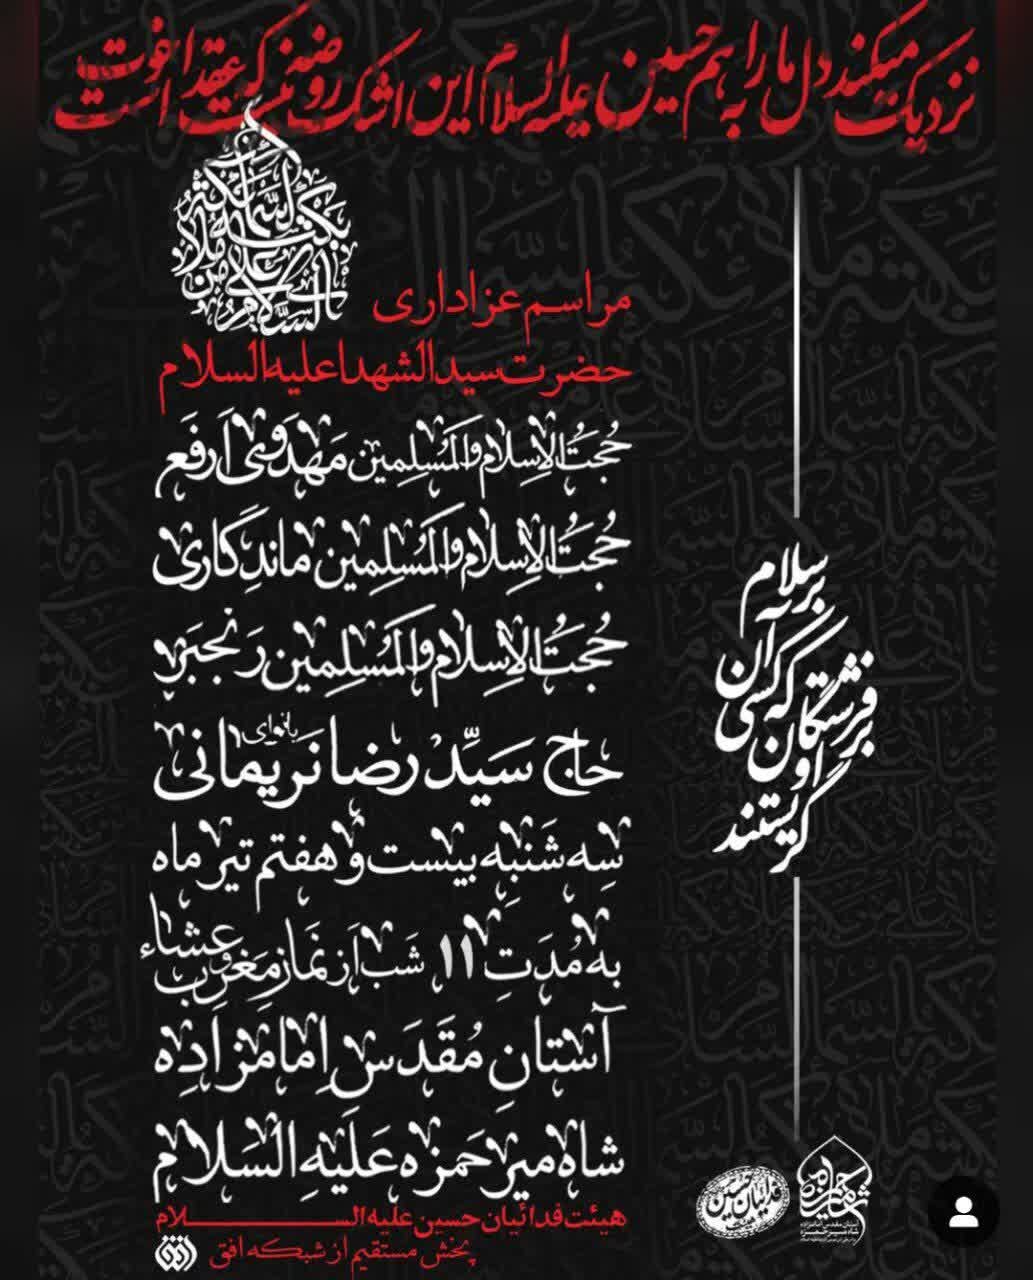 نزدیک میکند دل ما را به هم حسین علیه السلام این اشک روضه نیست که عقد اخوت است
السلام علی من بکته ملائکة السماء
مراسم عزاداری
حضرت سیدالشهدا علیه السلام
حُجَتُ الاِسلام وَالمَسُلِمین مَهدَوی اَرفَع
حُجَتُ الاِسلام وَالمَسُلِمین ماندِگاری
حُجَتُ الاِسلام وَالمَسُلِمین رَنجبَر
با نوای
حاج سَیِّد رضا نَریمانی
سِه شَنبِه بیست و هفتم تیر ماه
به مُدَتِ ۱۱ شَب اَز نَمازِ مَغرِب و عشاء
آستانِ مُقَدَسِ اِمامزادِه
شاه میر حَمزه عَلَیهِ السَلام
هیئت فدائیان حسین علیه السلام
پخش مستقیم از شبکه افق
افق
بر سلام
بر فرشتگان
آن کسی که
بر او
گریستند
فدائیان حسین
شاه میر حمزه
آستان مقدس امامزاده
شاه میر حمزه